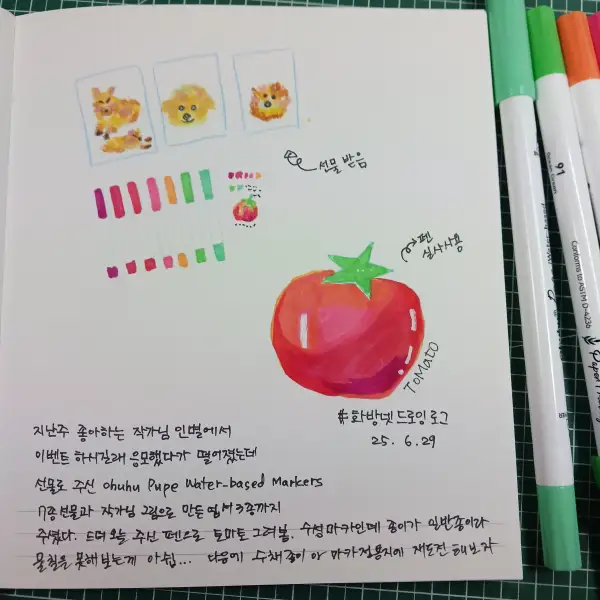 선물 받음
펜
실사사용
TOMATO
#화방넷드로잉로그
25. 6. 29
지난주 좋아하는 작가님 인별에서
이벤트 하시길래 응모했다가 떨어졌는데
선물로 주신 ohuhu Pupe Water-based Markers
7종선물과 작가님 그림으로 만든 엽서 3종까지
주셨다. 드디어 오늘 주신 펜으로 토마토 그려봄. 수성마카인데 종이가 일반종이라
물칠을 못해보는게 아쉽... 다음에 수채종이 or 마카전용지에 재도전 해보자
91
Conforms to ASTM D-4236